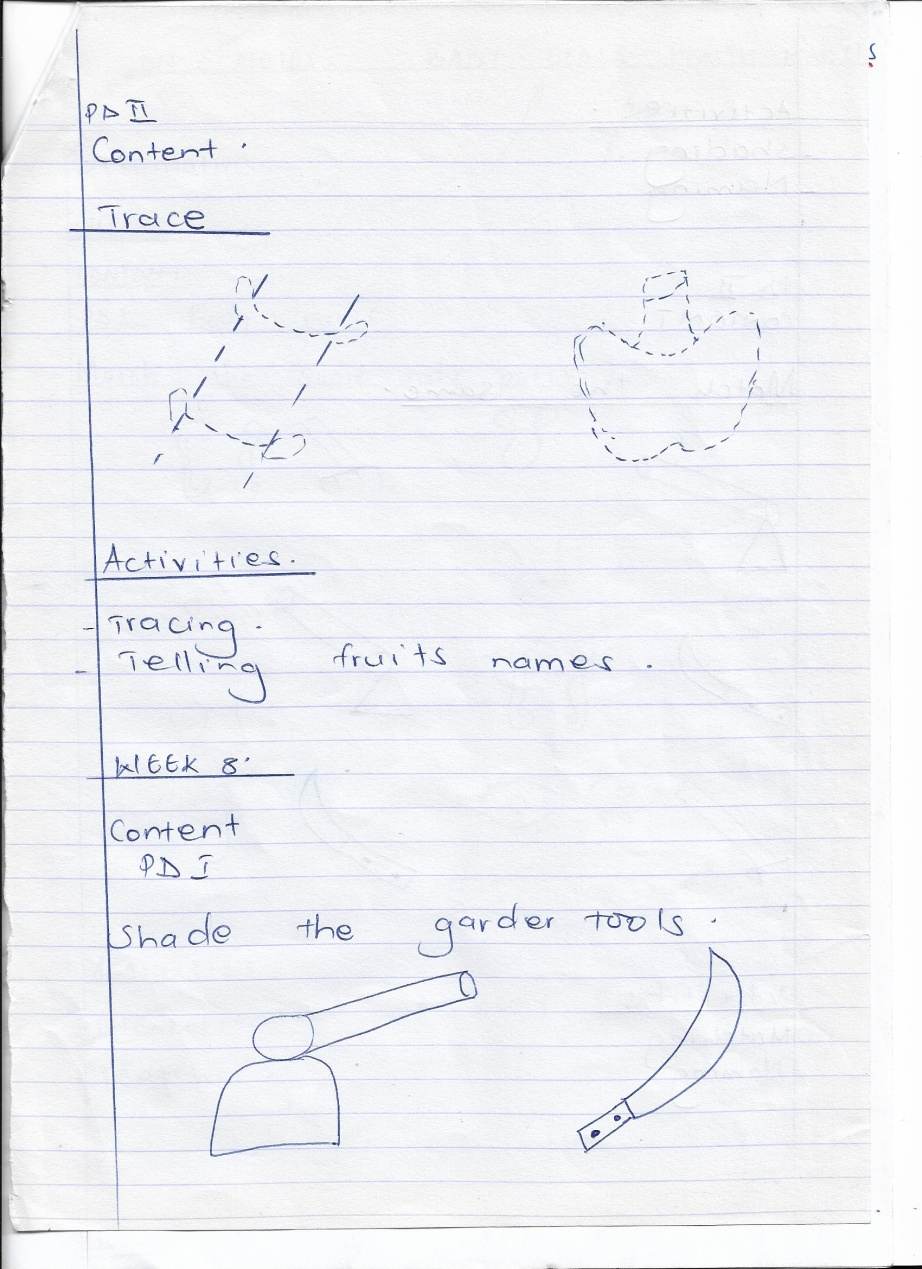 PD II
Content .
Trace
Activities.
- Tracing.
- Telling fruits names.
WEEK 8.
Content
PD I
Shade the garder tools.